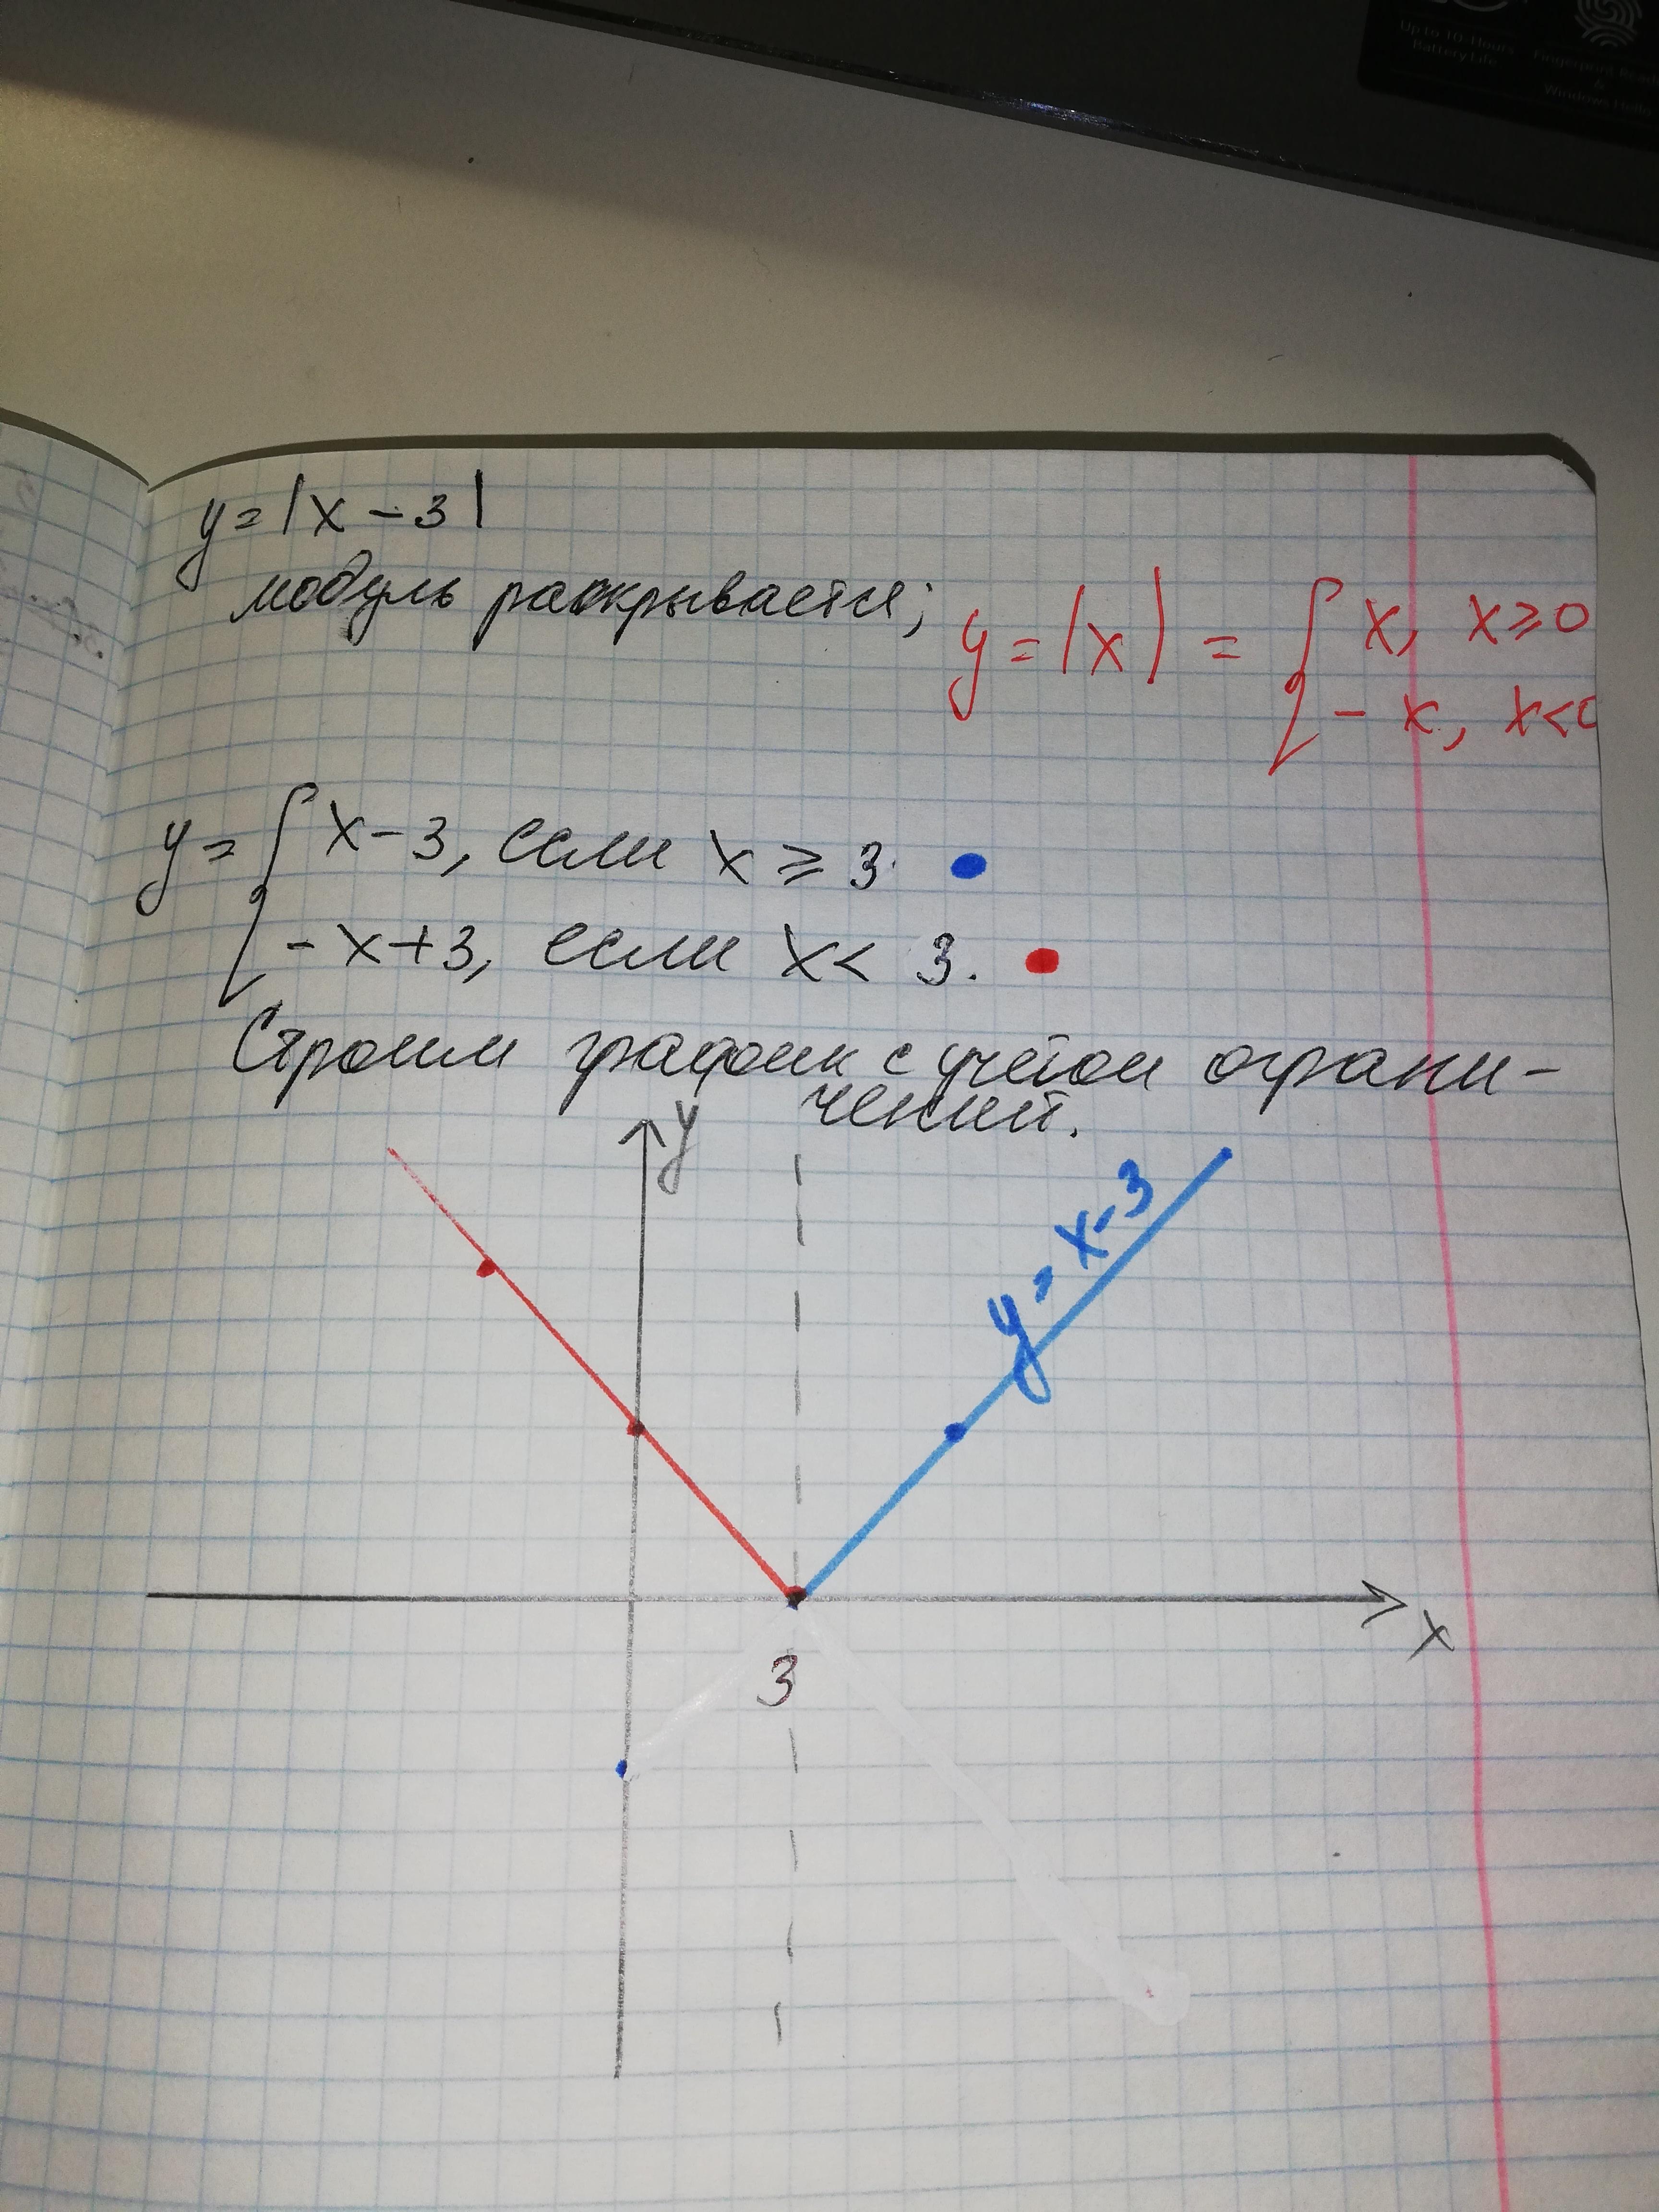 Up to 10-Hours
Battery Life
Fingerprint
&
Windows Hello
y=|x-3|
модуль раскрывается; y=|x|= { x, x⩾0
-x, x<0
y= { x-3, если x ⩾ 3
-x+3, если x < 3.
Строим график с учётом ограни-
чений.
y
y=x-3
x
3